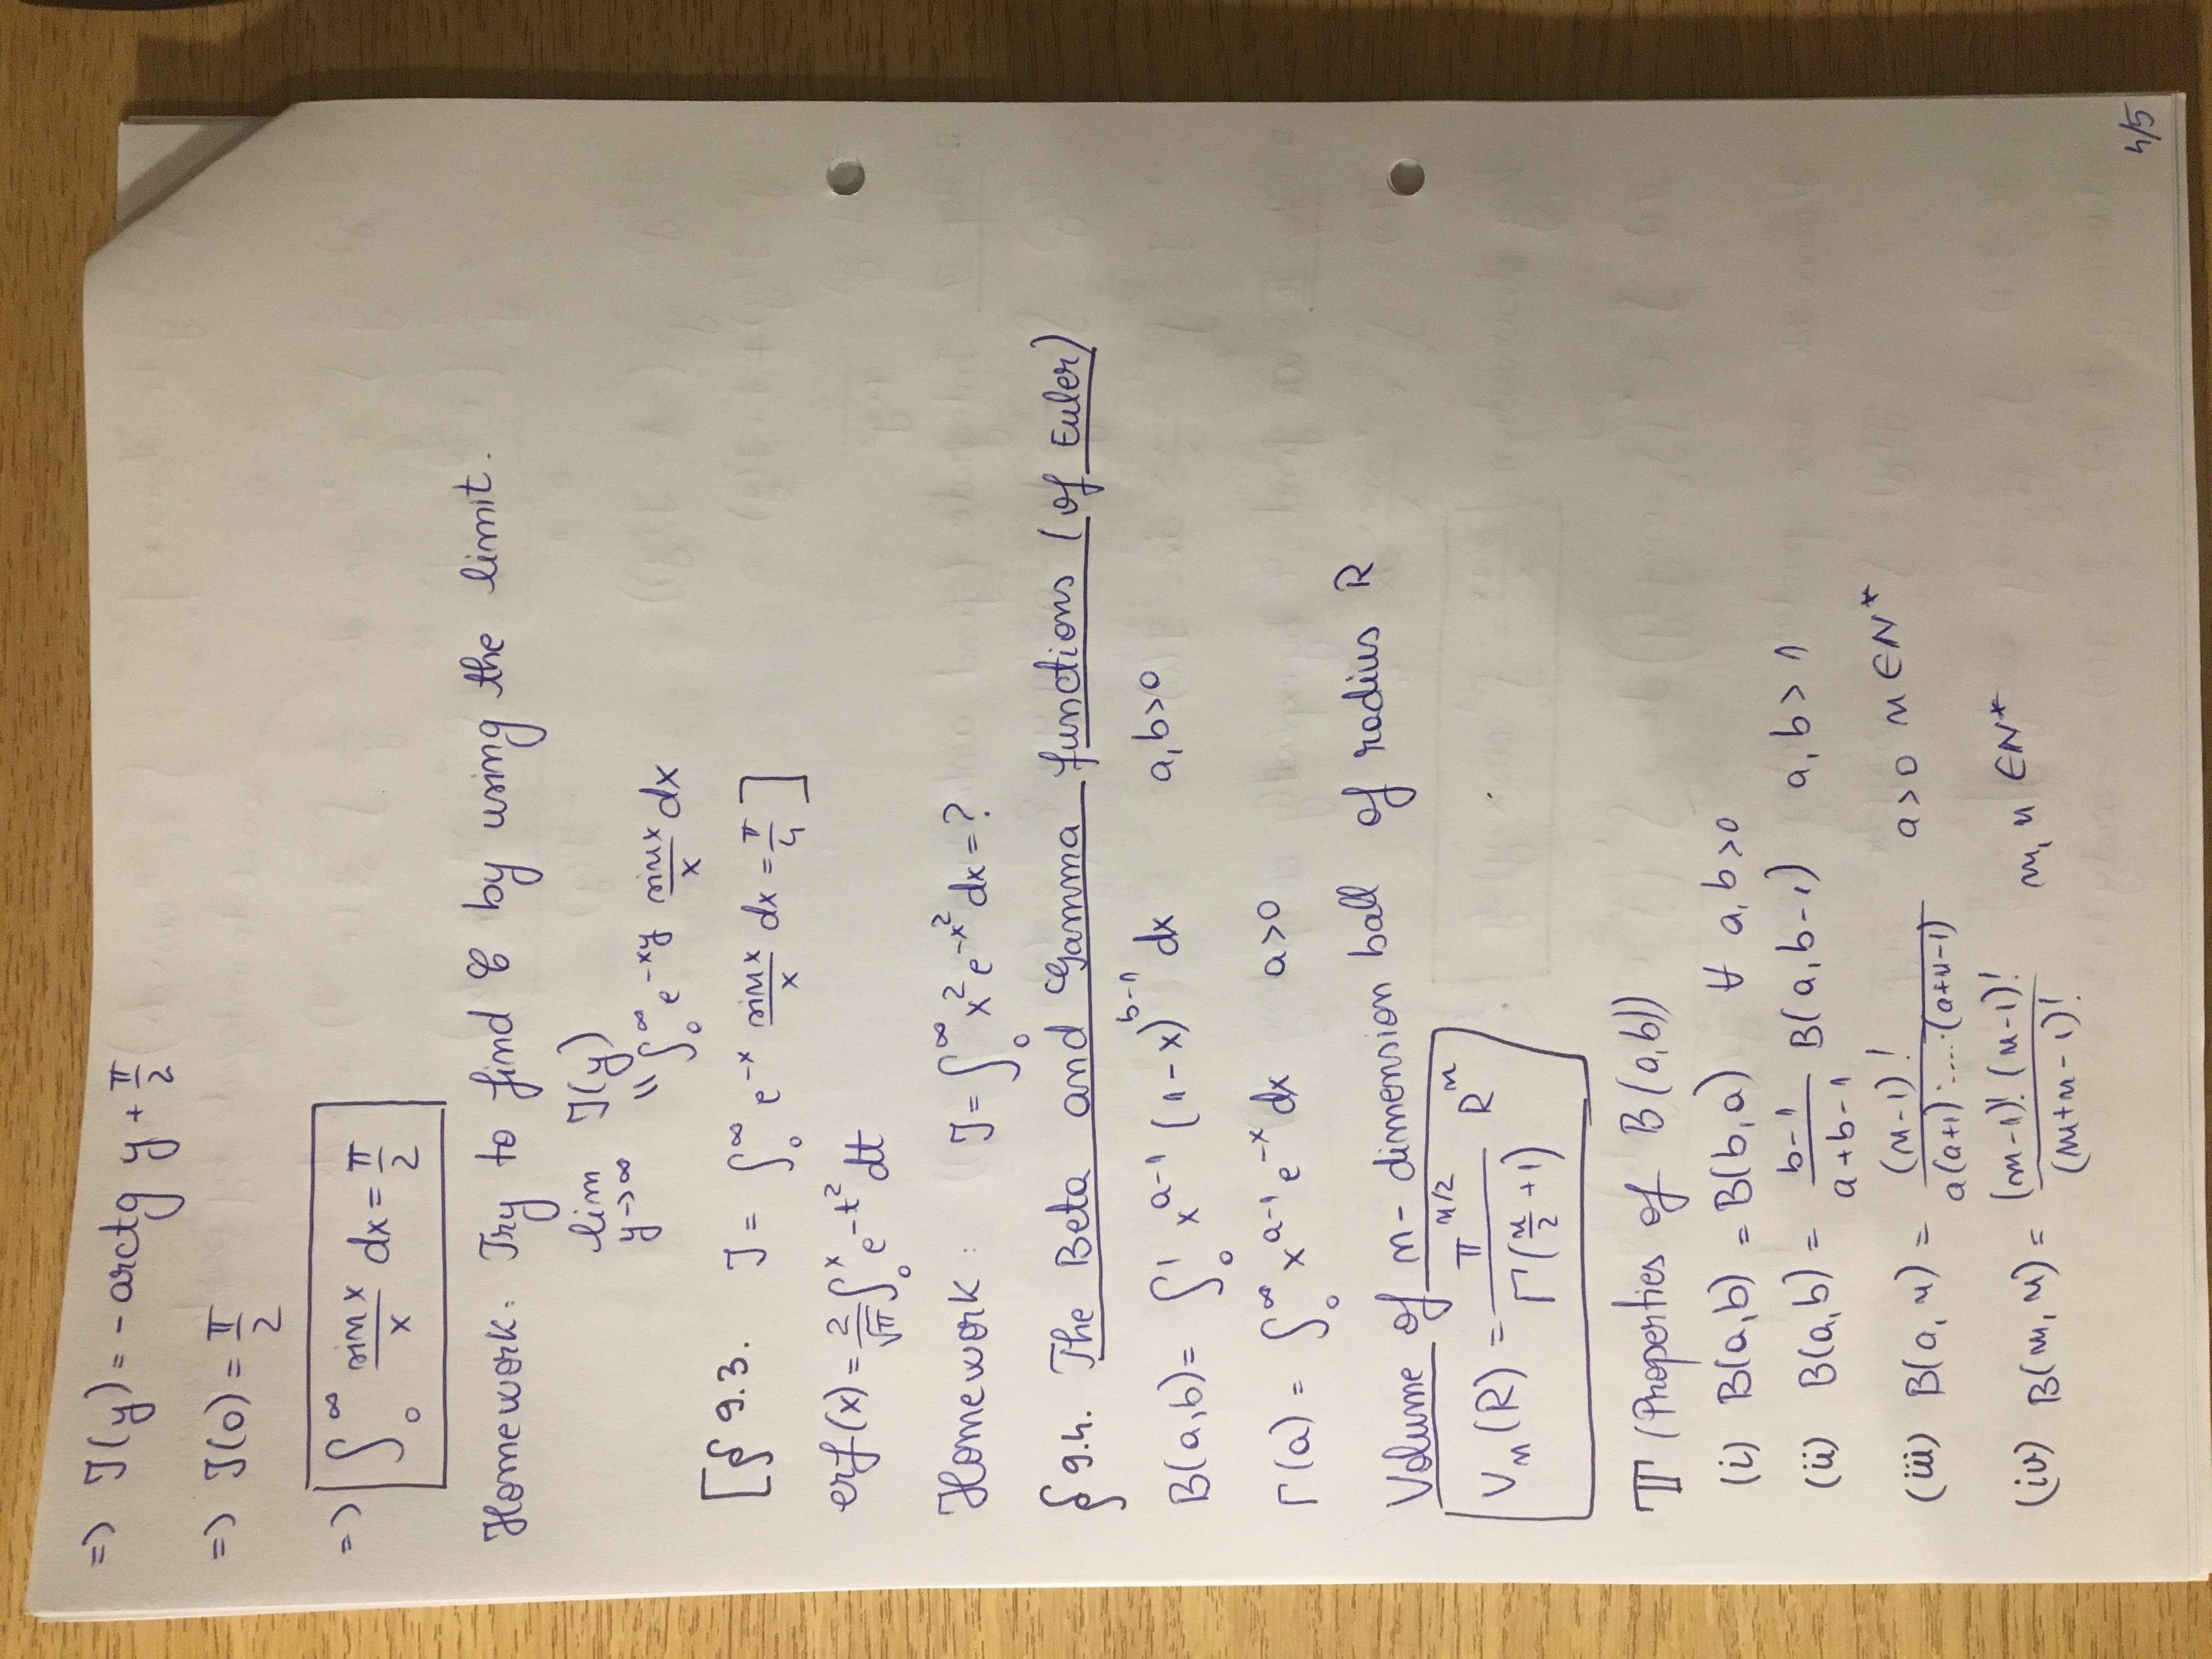 => J(y) = -arctg y + π/2
=> J(0) = π/2
=> ∫₀^∞ sin x/x dx = π/2
Homework: Try to find C by using the limit.
lim y->∞ J(y)
" ∫₀^∞ e^(-xy) sin x/x dx
[§ 9.3. J = ∫₀^∞ e^(-x) sin x/x dx = π/4]
erf(x) = 2/√π ∫₀^x e^(-t²) dt
Homework: J = ∫₀^∞ x² e^(-x²) dx = ?
§ 9.4. The Beta and Gamma functions (of Euler)
B(a,b) = ∫₀^1 x^(a-1) (1-x)^(b-1) dx a,b>0
Γ(a) = ∫₀^∞ x^(a-1) e^(-x) dx a>0
Volume of n-dimension ball of radius R
Vn(R) = π^(n/2) / Γ(n/2 + 1) R^n
T (Properties of B(a,b))
(i) B(a,b) = B(b,a) ∀ a,b>0
(ii) B(a,b) = (b-1)/(a+b-1) B(a,b-1) a,b > 1
(iii) B(a,n) = (n-1)! / a(a+1)·....·(a+n-1) a>0 n∈N*
(iv) B(m,n) = (m-1)! (n-1)! / (m+n-1)! m,n ∈N*
4/5